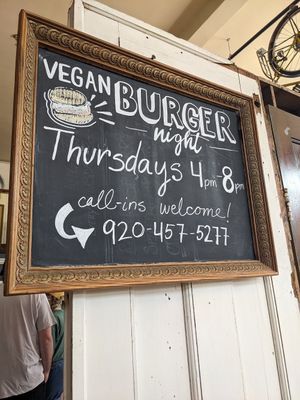 VEGAN BURGER
night
Thursdays 4pm-8pm
call-ins welcome!
920-457-5277